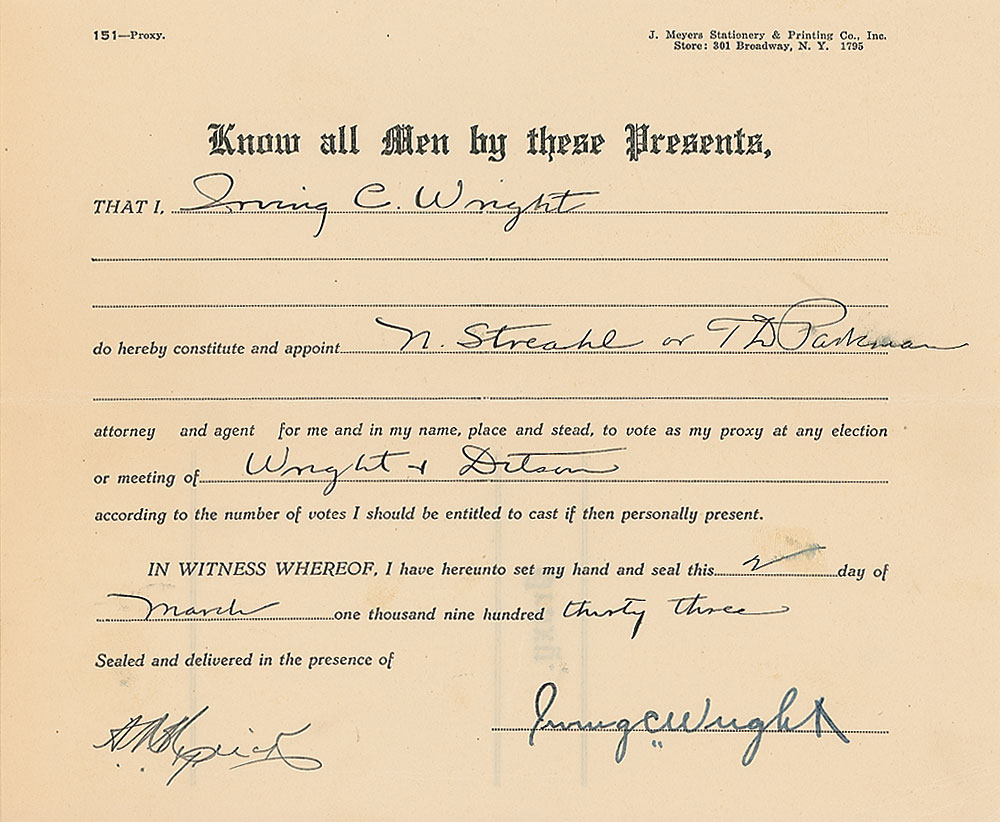 151—Proxy.
J. Meyers Stationery & Printing Co., Inc.
Store: 301 Broadway, N. Y. 1795
Know all Men by these Presents,
THAT I, Irving C. Wright
do hereby constitute and appoint N. Streahl or T D Parkman
attorney and agent for me and in my name, place and stead, to vote as my proxy at any election
or meeting of Wright & Ditson
according to the number of votes I should be entitled to cast if then personally present.
IN WITNESS WHEREOF, I have hereunto set my hand and seal this 2 day of
March one thousand nine hundred thirty three
Sealed and delivered in the presence of
Irving C Wright